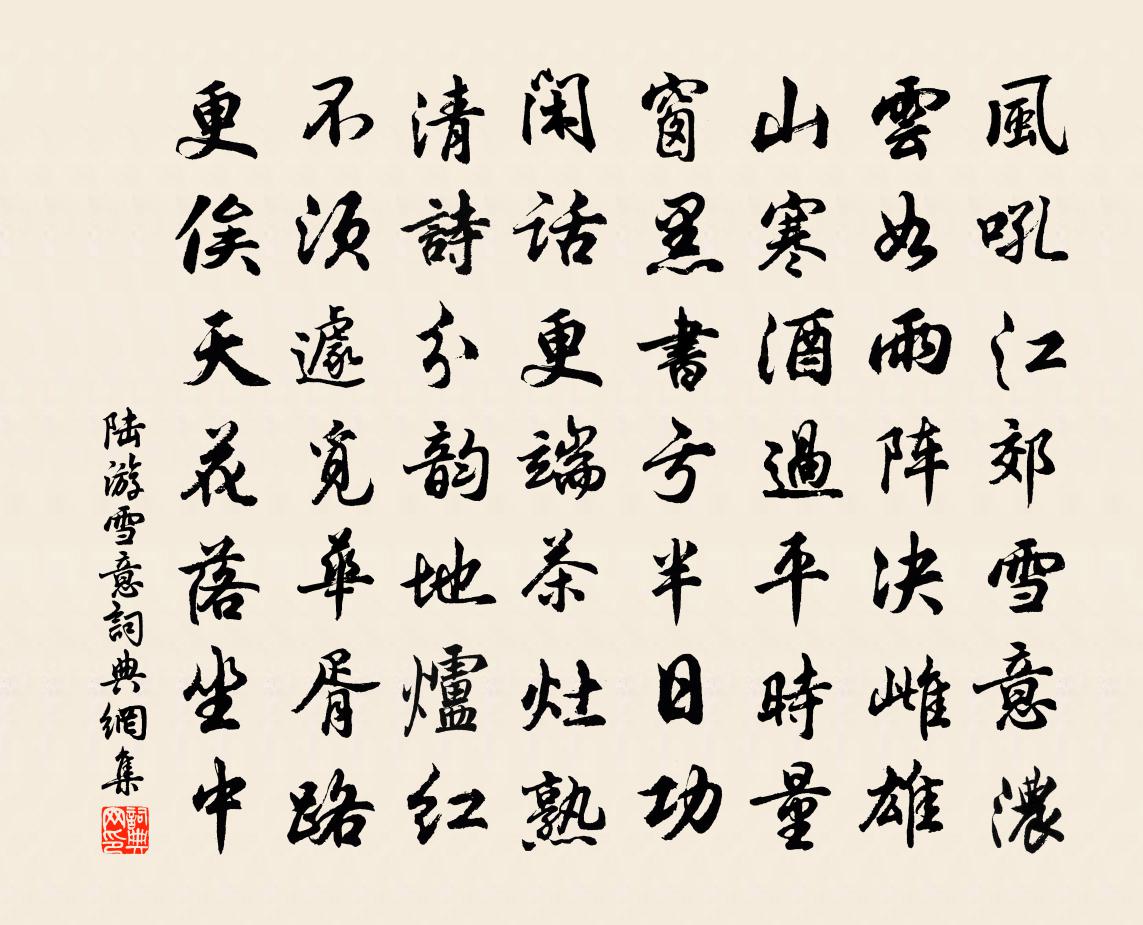 風吼江郊雪意濃
雲如雨阵決雌雄
山寒酒過平時量
窗黑書亏半日功
闲話更端茶灶熟
清詩分韵地爐红
不須遽覓華胥路
更俟天花落坐中
陆游雪意詞典網集
詞典网印